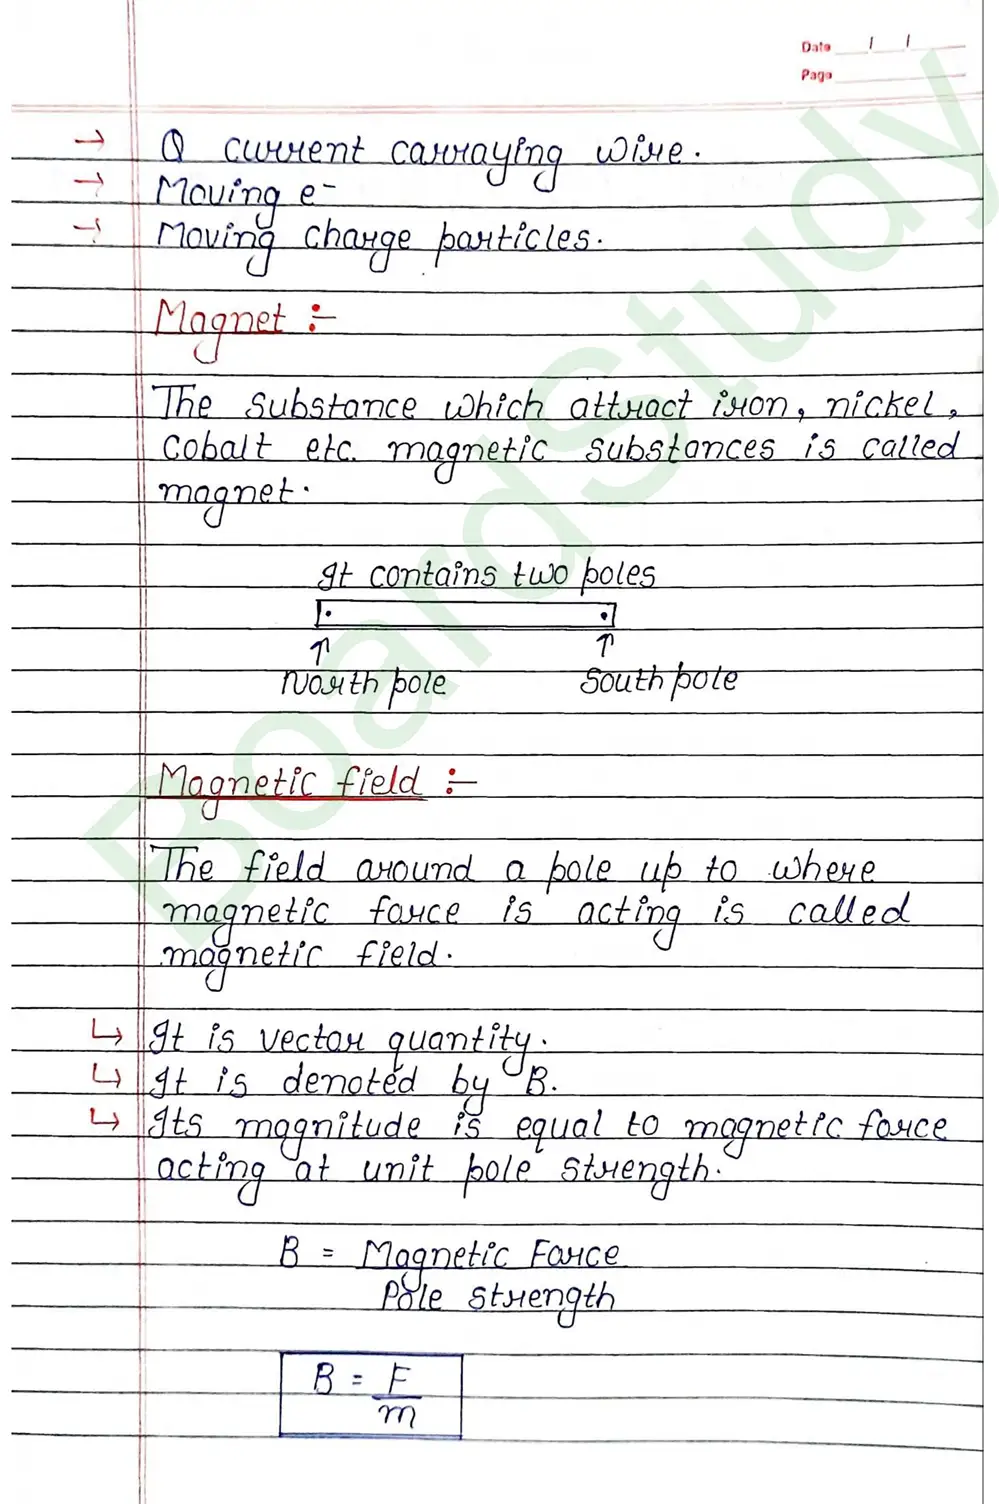 Date / /
Page
→ A current carraying wire.
→ Moving e⁻
→ Moving charge particles.
Magnet :-
The substance which attract iron, nickel,
Cobalt etc. magnetic substances is called
magnet.
It contains two poles
↑ ↑
North pole South pole
Magnetic field :-
The field around a pole up to where
magnetic force is acting is called
magnetic field.
↳ It is vector quantity.
↳ It is denoted by B.
↳ Its magnitude is equal to magnetic force
acting at unit pole strength.
B = Magnetic Force
Pole strength
B = F
m
BoardStudy